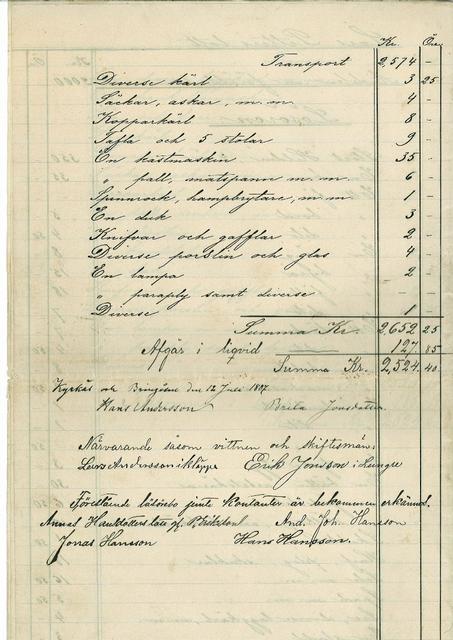 Kr. Öre
Transport 2,574 -
Diverse kärl 3 25
Säckar, askar, m. m. 4 -
Kopparkärl 8 -
Tafla och 5 stolar 9 -
En kastmaskin 35 -
" pall, matspann m. m. 6 -
Spinnrock, hampbrytare, m. m 1 -
En duk 3 -
Knifvar och gafflar 2 -
Diverse porslin och glas 4 -
En lampa 2 -
" paraply samt diverse - -
Diverse 1 -
Summa Kr. 2,652 25
Afgår i liqvid 127 85
Summa Kr. 2,524 40
Kyrkås och Bringåsen den 12 Juli
Hans Andersson Brita Jonsdotter
Närvarande såsom vittnen och skiftesmän:
Lars Andersson i Kläppe Erik Jonsson i Lungre
Förestående lösöre jemte kontanter är bekommen erkännd.
And. Joh. Hansson
Jonas Hansson Hans Hansson.